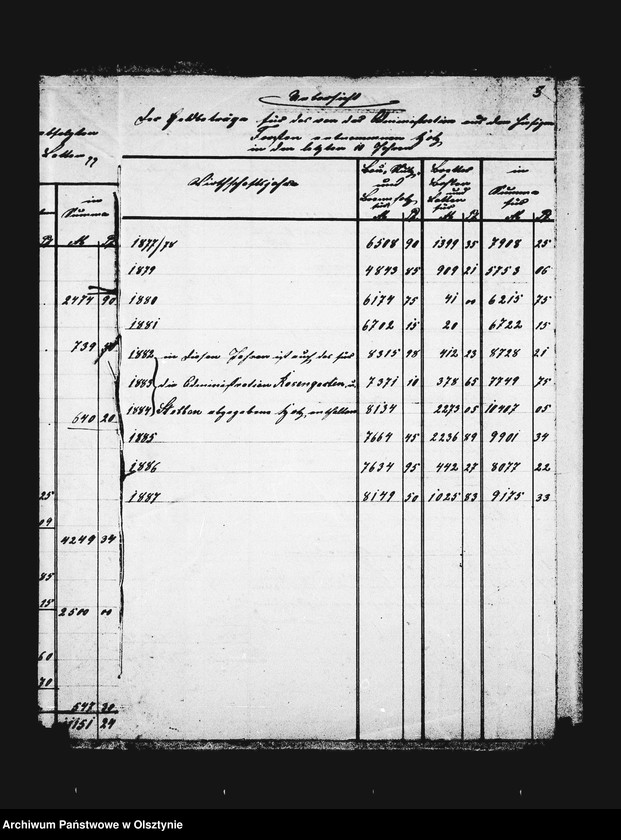 3
Uebersicht
der Geldbeträge für das von der Administration aus den hiesigen
Forsten entnommene Holz
in den letzten 10 Jahren
abholzten
Latten
in
Summa
M Pf
2474 90
739
640 20
25
09
4249 34
85
15
2500 00
60
70
547 30
1151 24
Wirthschaftsjahr
Bau-, Nutz-
und
Brennholz
für
M Pf
Bretter
Bohlen
und
Latten
für
M Pf
in
Summa
für
M Pf
1877/78 6508 90 1399 35 7908 25
1879 4843 85 909 21 5753 06
1880 6174 75 41 00 6215 75
1881 6702 15 20 6722 15
1882 in diesen Jahren ist auch das für 8315 98 412 23 8728 21
1883 die Administration Rosengarten u. 7371 10 378 65 7749 75
1884 Stetten abgegebene Holz enthalten 8134 2273 05 10407 05
1885 7664 45 2236 89 9901 34
1886 7634 95 442 27 8077 22
1887 8149 50 1025 83 9175 33
Archiwum Państwowe w Olsztynie